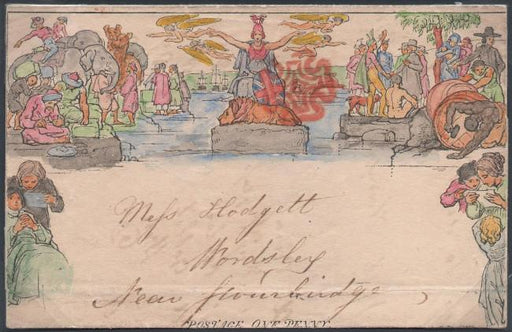 Miss Hodgett
Wordsley
Near Stourbridge
POSTAGE ONE PENNY